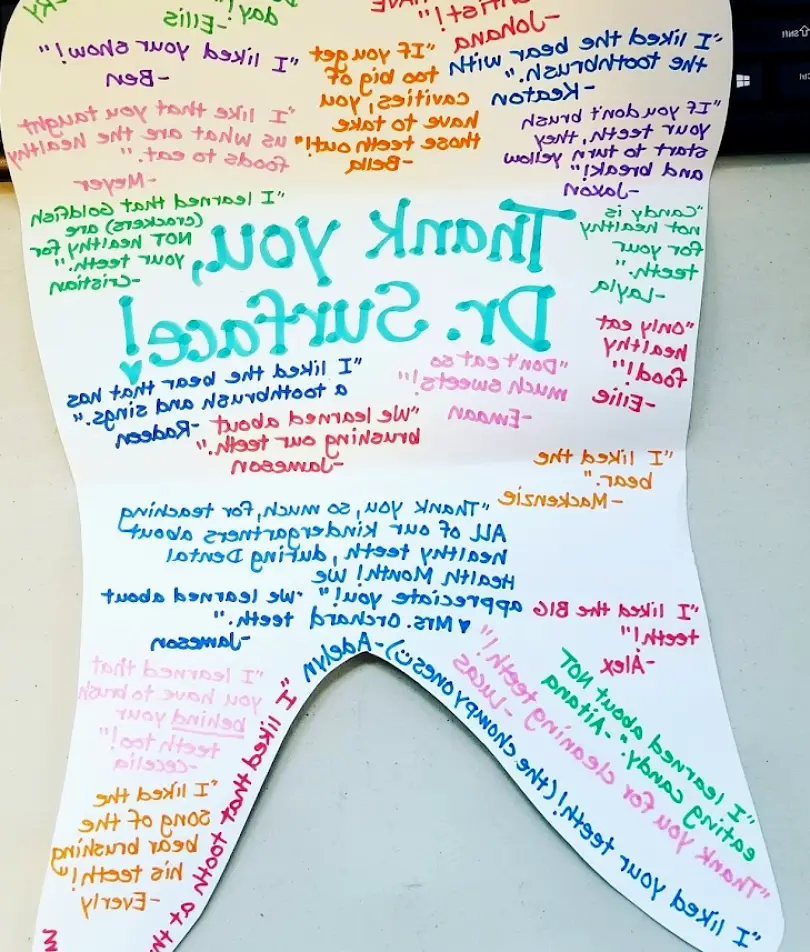 day!"
-Ellis
"I liked your show!"
-Ben
"I like that you taught
us what are the healthy
foods to eat."
-Meyer
"I learned that Goldfish
(crackers) are
NOT healthy for
your teeth."
-Cristian
"If you get
too big of
cavities, you
have to take
those teeth out!"
-Bella
-Johana
"I liked the bear with
the toothbrush."
-Keaton
"If you don't brush
your teeth, they
start to turn yellow
and break!"
-Jaxon
"Candy is
not healthy
for your
teeth."
-Layla
Thank you,
Dr. Surface!
"only eat
healthy
food!"
-Ellie
"I liked the bear that has
a toothbrush and sings."
-Radeen
"Don't eat so
much sweets!"
-Emaan
"We learned about
brushing our teeth."
-Jameson
"I liked the
bear."
-Mackenzie
"Thank you, so much, for teaching
ALL of our kindergartners about
healthy teeth, during Dental
Health Month! We
appreciate you!"
♥ Mrs. Orchard
"We learned about
teeth."
-Jameson
"I liked the BIG
teeth!"
-Alex
"I learned that
you have to brush
behind your
teeth too!"
-Cecelia
"I liked the
song of the
bear brushing
his teeth!"
-Everly
"I liked that tooth at
"I learned about NOT
eating candy." -Aitana
"Thank you for cleaning teeth!"
-Lucas
"I liked your teeth! (the chompy ones☺) -Adelyn